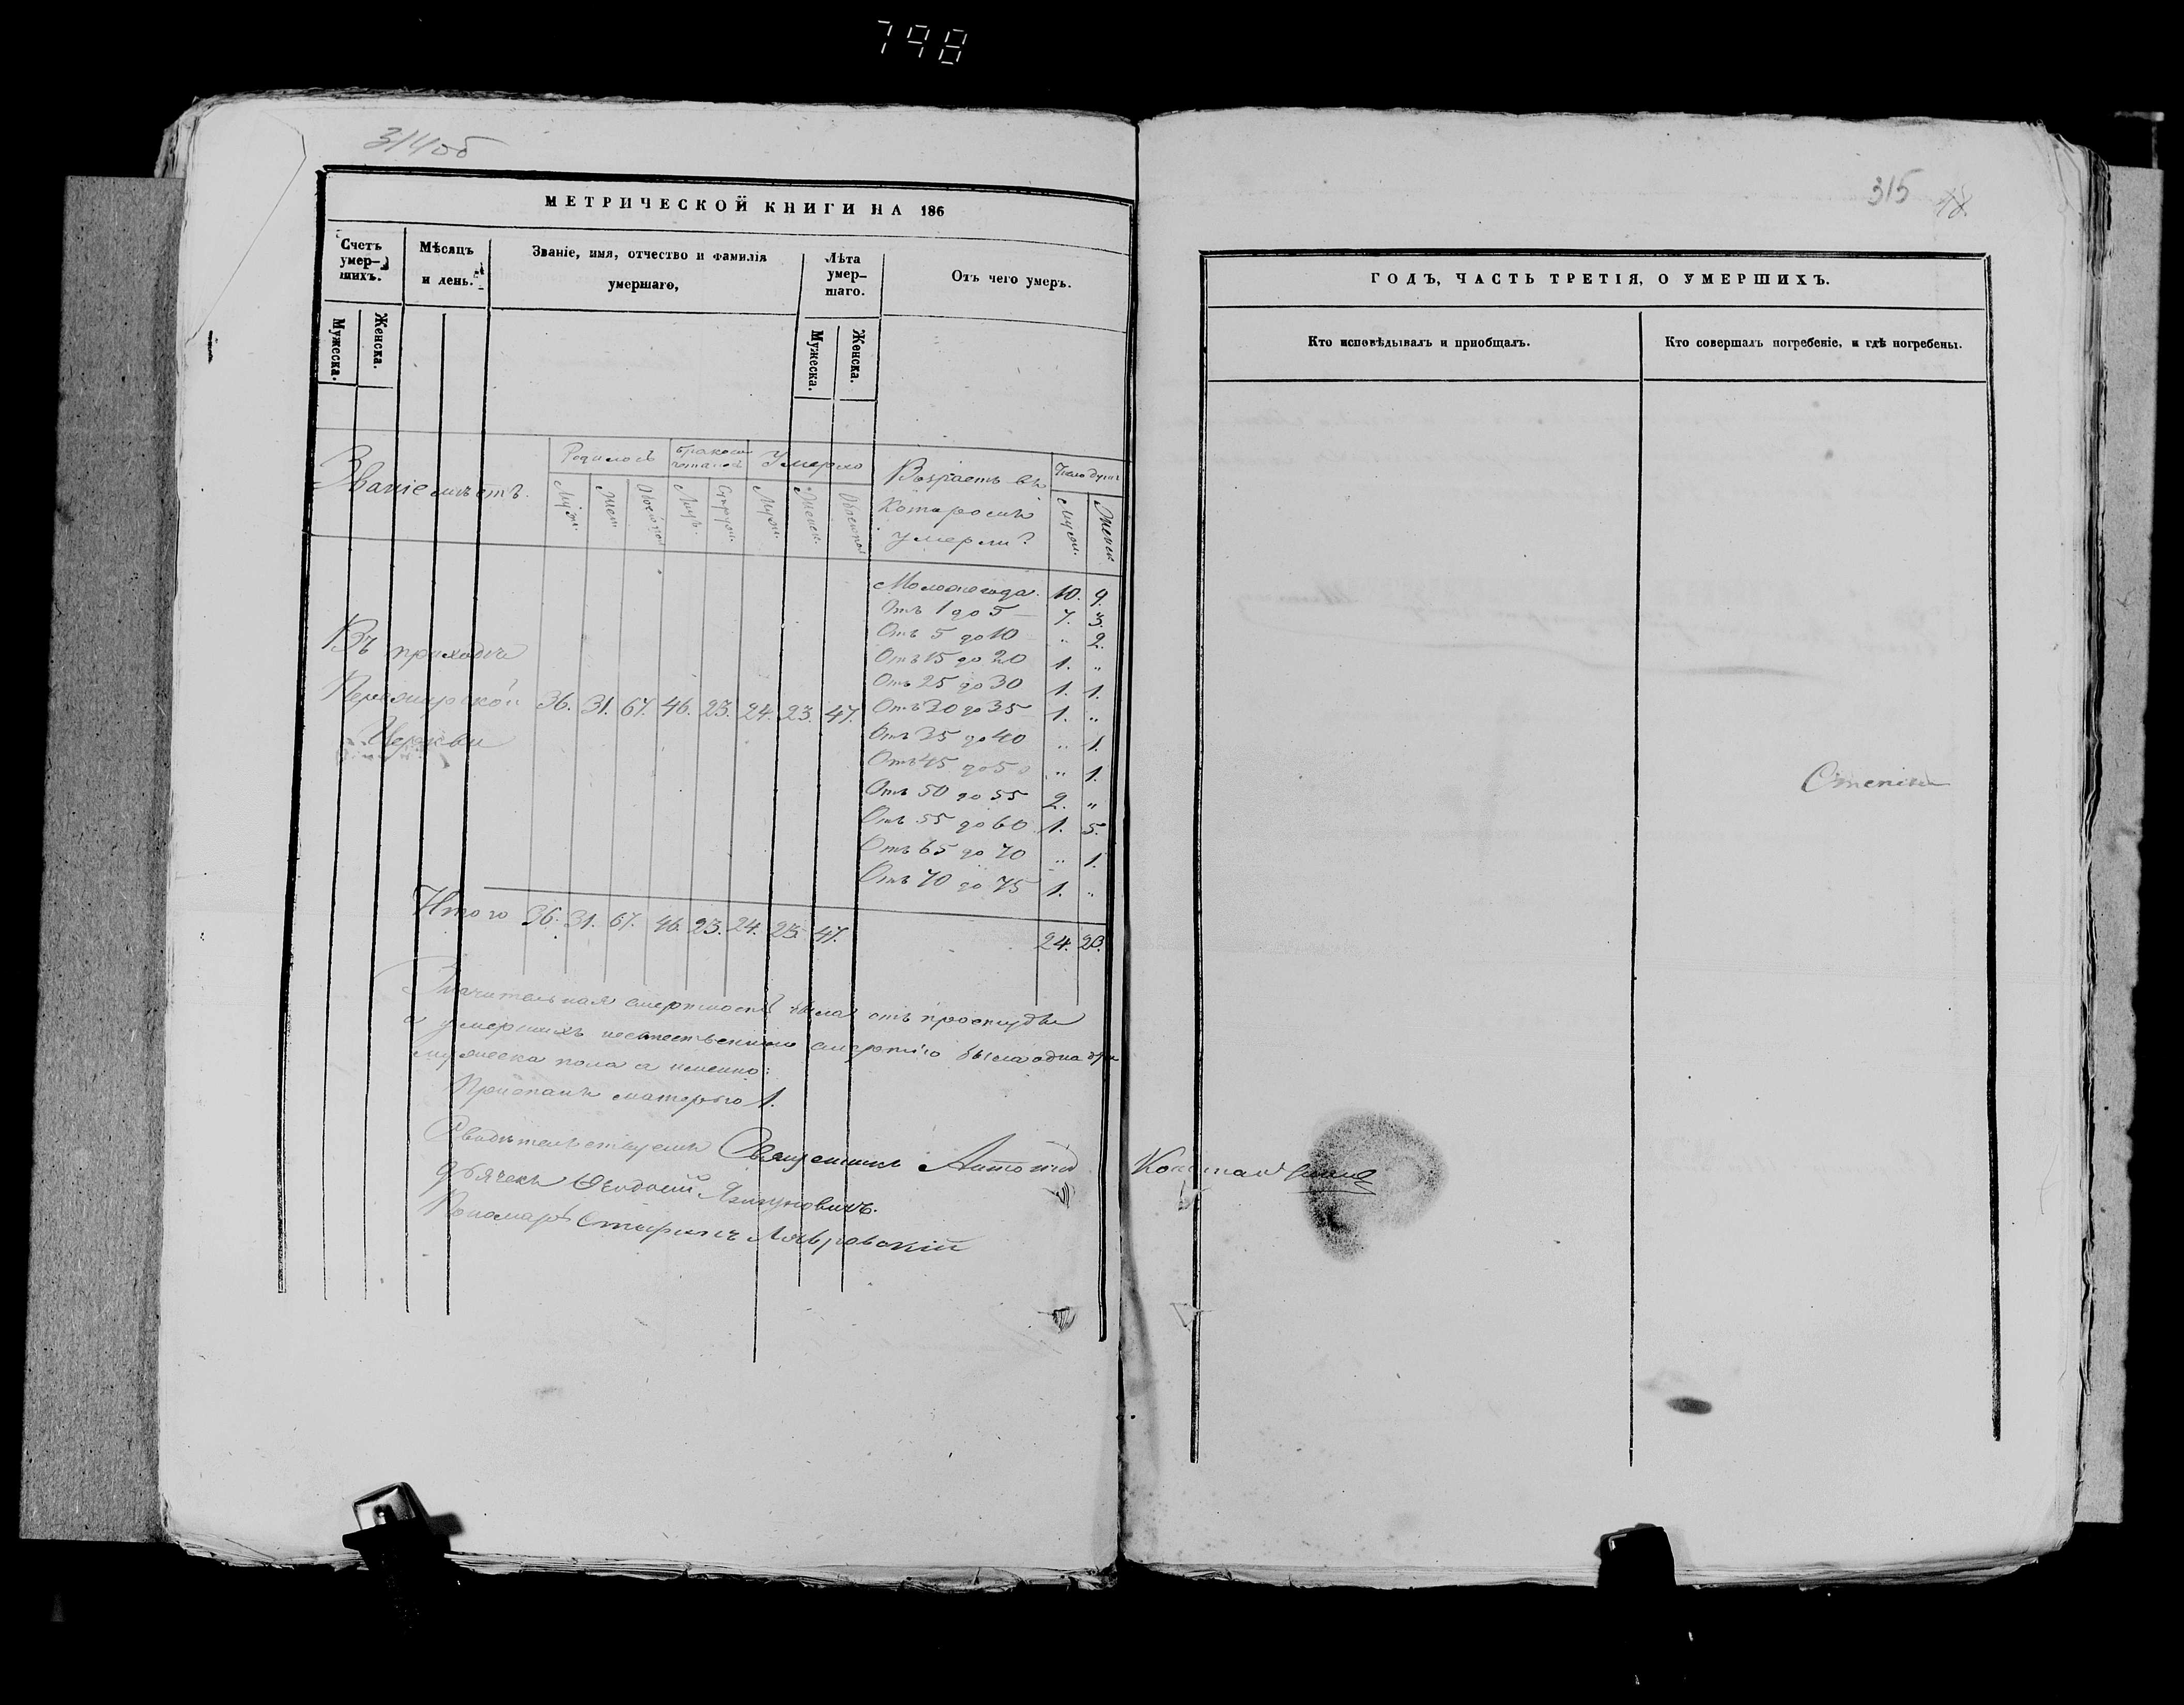 798
314об
МЕТРИЧЕСКОЙ КНИГИ НА 186
Счетъ умер-шихъ.
Мѣсяцъ и день.
Званіе, имя, отчество и фамилія умершаго,
Лѣта умер-шаго.
Отъ чего умеръ.
Мужеска.
Женска.
Мужеска.
Женска.
Званіе мѣстъ.
Родилось
Бракосочетаній
Умерло
Возрастъ въ которомъ умерли?
Число душъ
Муж.
Жен.
Обоего пол
Муж.
Супруж.
Муж.
Женск.
Обоего пол
Муж.
Женск
Моложе года. 10. 9.
Отъ 1 до 5 7. 3.
Отъ 5 до 10 " 2.
Отъ 15 до 20 1. "
Отъ 25 до 30 1. 1.
Отъ 30 до 35 1. "
Отъ 35 до 40 " 1.
Отъ 45 до 50 " 1.
Отъ 50 до 55 2. "
Отъ 55 до 60 1. 5.
Отъ 65 до 70 " 1.
Отъ 70 до 75 1. "
Въ приходѣ
36. 31. 67. 46. 23. 24. 23. 47.
Церкви
Итого 36. 31. 67. 46. 23. 24. 23. 47. 24. 23.
Значительная смертность была отъ простуды
а умершихъ неестественною смертію была одна душ
мужеска пола а именно:
Приспанъ матерью 1.
Свидѣтельствуемъ Священникъ Антоній
Дьячекъ Ѳеодосій
Пономарь Стефанъ Лавровскій
315
18
ГОДЪ, ЧАСТЬ ТРЕТІЯ, О УМЕРШИХЪ.
Кто исповѣдывалъ и приобщалъ.
Кто совершалъ погребеніе, и гдѣ погребены.